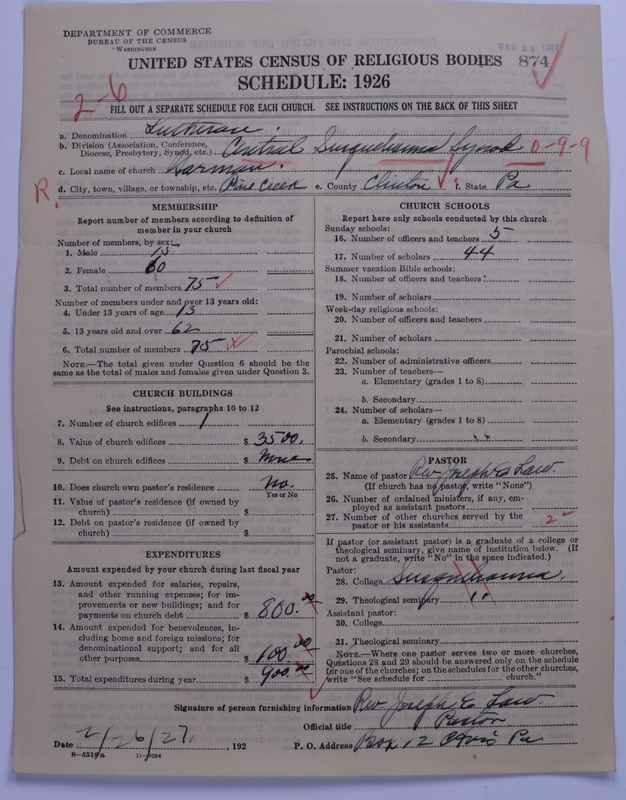 DEPARTMENT OF COMMERCE
BUREAU OF THE CENSUS
WASHINGTON
FEB 28 1927
UNITED STATES CENSUS OF RELIGIOUS BODIES 874
SCHEDULE: 1926
2-6
FILL OUT A SEPARATE SCHEDULE FOR EACH CHURCH. SEE INSTRUCTIONS ON THE BACK OF THIS SHEET
a. Denomination Lutheran.
b. Division (Association, Conference, Diocese, Presbytery, Synod, etc.) Central Susquehanna Synod 0-9-9
c. Local name of church Harman.
R. d. City, town, village, or township, etc. Pine Creek e. County Clinton f. State Pa
MEMBERSHIP
Report number of members according to definition of
member in your church
Number of members, by sex:
1. Male 15
2. Female 60
3. Total number of members 75
Number of members under and over 13 years old:
4. Under 13 years of age 13
5. 13 years old and over 62
6. Total number of members 75
NOTE.—The total given under Question 6 should be the
same as the total of males and females given under Question 3.
CHURCH BUILDINGS
See instructions, paragraphs 10 to 12
7. Number of church edifices 1
8. Value of church edifices $ 3500.
9. Debt on church edifices $ None
10. Does church own pastor's residence No.
Yes or No
11. Value of pastor's residence (if owned by
church) $
12. Debt on pastor's residence (if owned by
church) $
EXPENDITURES
Amount expended by your church during last fiscal year
13. Amount expended for salaries, repairs,
and other running expenses; for im-
provements or new buildings; and for
payments on church debt $ 800.00
14. Amount expended for benevolences, in-
cluding home and foreign missions; for
denominational support; and for all
other purposes $ 100.00
15. Total expenditures during year $ 900.00
CHURCH SCHOOLS
Report here only schools conducted by this church
Sunday schools:
16. Number of officers and teachers 5
17. Number of scholars 44
Summer vacation Bible schools:
18. Number of officers and teachers
19. Number of scholars
Week-day religious schools:
20. Number of officers and teachers
21. Number of scholars
Parochial schools:
22. Number of administrative officers
23. Number of teachers—
a. Elementary (grades 1 to 8)
b. Secondary
24. Number of scholars—
a. Elementary (grades 1 to 8)
b. Secondary
PASTOR
25. Name of pastor Rev Joseph E. Law.
(If church has no pastor, write "None")
26. Number of ordained ministers, if any, em-
ployed as assistant pastors
27. Number of other churches served by the
pastor or his assistants 2
If pastor (or assistant pastor) is a graduate of a college or
theological seminary, give name of institution below. (If
not a graduate, write "No" in the space indicated.)
Pastor:
28. College Susquehanna.
29. Theological seminary "
Assistant pastor:
30. College
31. Theological seminary
NOTE.—Where one pastor serves two or more churches,
Questions 28 and 29 should be answered only on the schedule
for one of the churches; on the schedules for the other churches,
write "See schedule for church."
Signature of person furnishing information Rev. Joseph E. Law.
Official title Pastor
Date 2/26/27, 192
P. O. Address Box 12 Avis Pa
8—5518a 11—9054